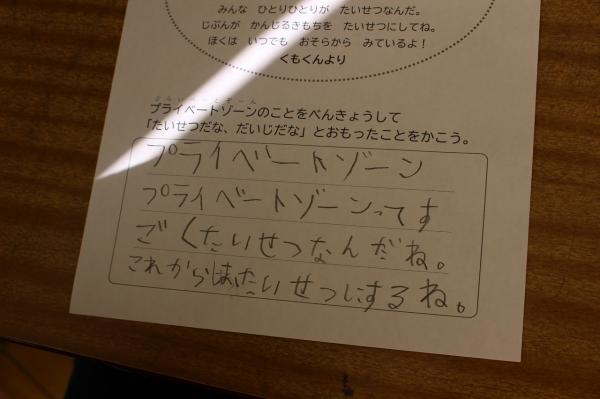 みんな ひとりひとりが たいせつなんだ。
じぶんが かんじるきもちを たいせつにしてね。
ぼくは いつでも おそらから みているよ！
くもくんより
プライベートゾーンのことをべんきょうして
「たいせつだな、だいじだな」とおもったことをかこう。
プライベートゾーン
プライベートゾーンってす
ごくたいせつなんだね。
これからは、たいせつにするね。